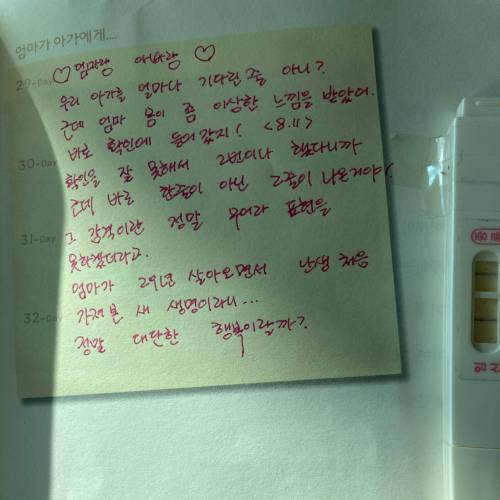 엄마가 아가에게....
♡ 엄마랑 아빠랑 ♡
29-Day
우리 아가를 얼마나 기다린 줄 아니?
근데 엄마 몸이 좀 이상한 느낌을 받았어.
바로 확인에 들어갔지! <8.11>
30-Day
확인을 잘 못해서 2번이나 했다니까
근데 바로 한줄이 아닌 2줄이 나온거야!
그 감격이란 정말 무어라 표현을
31-Day
못하겠더라고.
엄마가 29년 살아오면서 난생 처음
가져본 새 생명이라니...
32-Day
정말 대단한 행복이랄까?